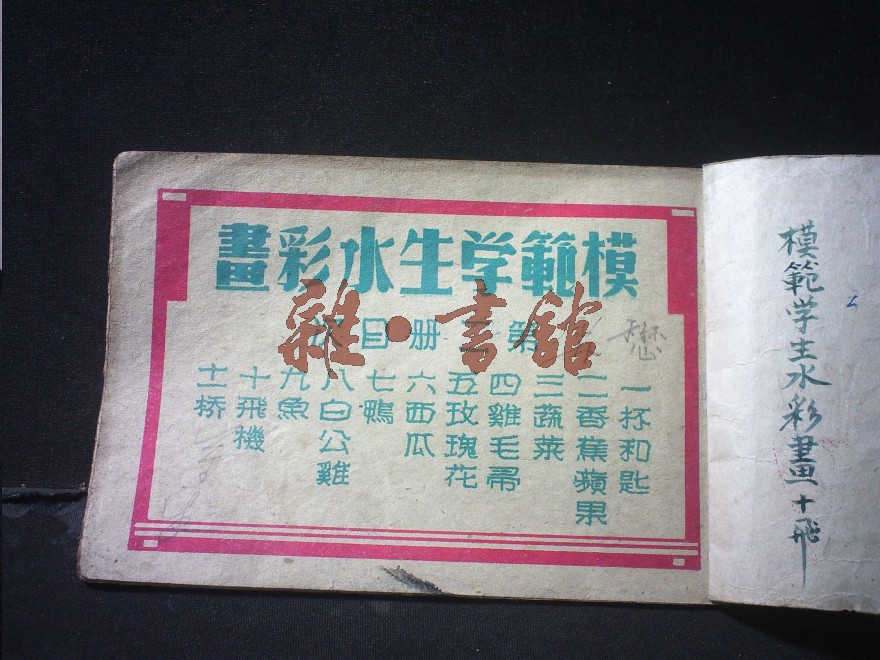 模範学生水彩畫
第 册目次
一杯和匙
二香蕉蘋果
三蔬菜
四雞毛帚
五玫瑰花
六西瓜
七鴨
八白公雞
九魚
十飛機
十一桥
雜·書館
模範学生水彩畫十飛